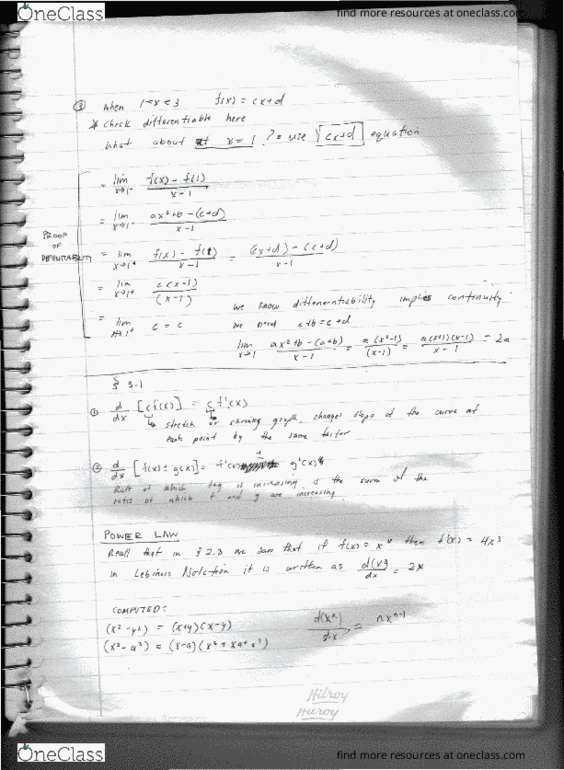 OneClass
find more resources at oneclass.com
③ when 1<x<3 f(x) = cx+d
* check differentiable here
What about at x=1 ? = use cx+d equation
PROOF OF
= lim x→1⁻ f(x) - f(1) / x-1
= lim x→1⁻ ax²+b - (c+d) / x-1
= lim x→1⁺ f(x) - f(1) / x-1 = (cx+d) - (c+d) / x-1
= lim x→1⁺ c(x-1) / (x-1)
= lim x→1⁺ c = c
We know differentiability implies continuity
We need a+b = c+d
lim x→1 ax²+b-(a+b) / x-1 = a(x²-1) / (x-1) = a(x+1)(x-1) / x-1 = 2a
§ 3.1
① d/dx [cf(x)] = c f'(x)
stretch or shrinking graph, changes slope of the curve at
each point by the same factor
② d/dx [f(x) ± g(x)] = f'(x) ± g'(x)
Rate at which is increasing is the sum of the
rates at which f and g are increasing
POWER LAW
Recall that in § 2.3 we saw that if f(x) = x⁴ then f'(x) = 4x³
in Lebinis Notation it is written as d(x²)/dx = 2x
COMPUTED:
(x²-y²) = (x+y)(x-y)
(x³-a³) = (x-a)(x²+xa+a²)
d(xⁿ)/dx = nxⁿ⁻¹
Hilroy
Hilroy
OneClass
find more resources at oneclass.com